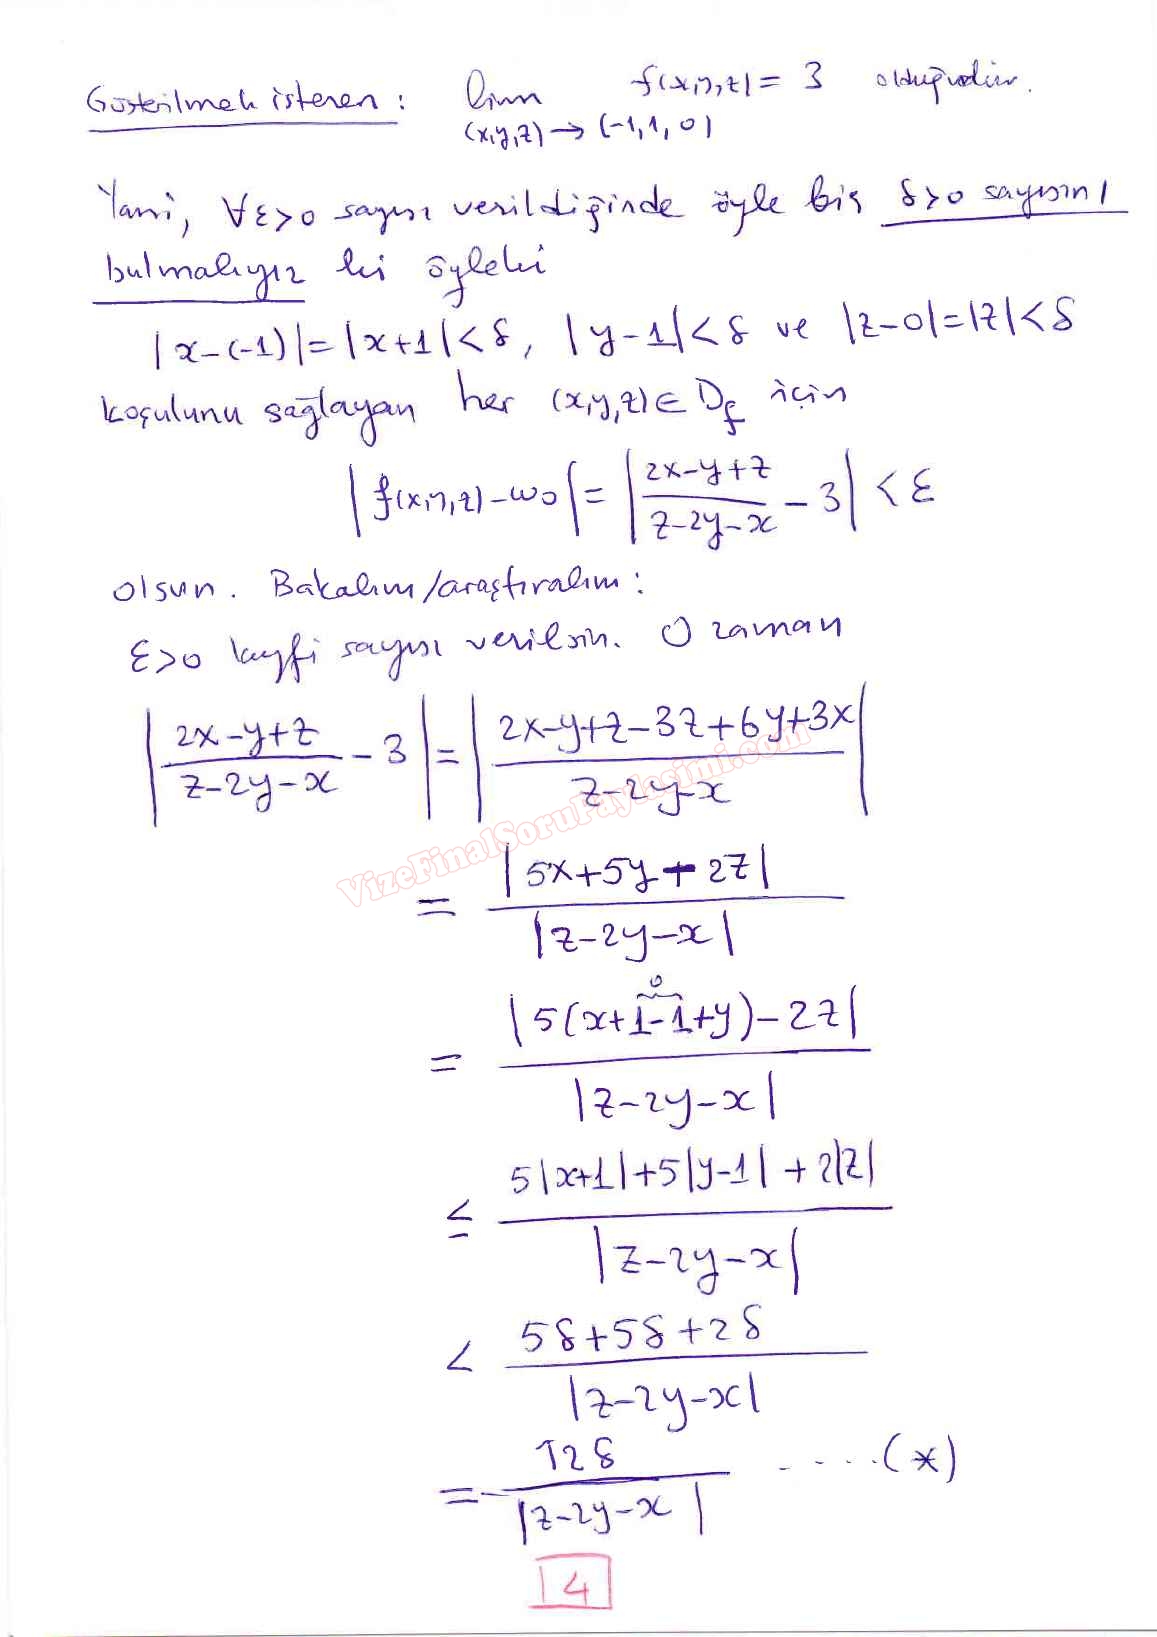 Gösterilmek istenen : lim f(x,y,z) = 3 olduğudur.
(x,y,z) → (-1,1,0)
Yani, ∀ε>0 sayısı verildiğinde öyle bir δ>0 sayısını
bulmalıyız ki öyleki
|x-(-1)|=|x+1|<δ, |y-1|<δ ve |z-0|=|z|<δ
koşulunu sağlayan her (x,y,z)∈D_f için
|f(x,y,z)-w0|=|(2x-y+z)/(z-2y-x) - 3| < ε
olsun. Bakalım/araştıralım :
ε>0 keyfi sayısı verilsin. O zaman
|(2x-y+z)/(z-2y-x) - 3| = |(2x-y+z-3z+6y+3x)/(z-2y-x)|
= |5x+5y-2z| / |z-2y-x|
0
= |5(x+1-1+y)-2z| / |z-2y-x|
≤ (5|x+1|+5|y-1|+2|z|) / |z-2y-x|
< (5δ+5δ+2δ) / |z-2y-x|
= 12δ / |z-2y-x| .....(*)
4
VizeFinalSoruPaylasimi.com